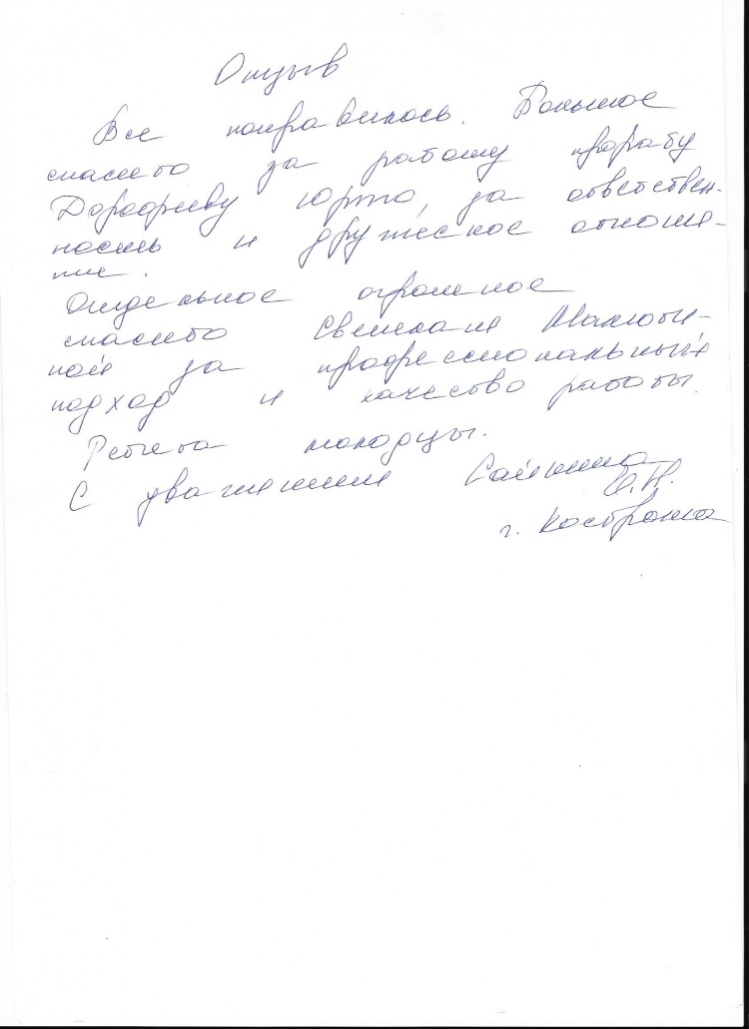 Отзыв
Все понравилось. Большое
спасибо за работу прорабу
Дорофееву Юрию, за ответствен-
ность и дружеское отноше-
ние.
Отдельное огромное
спасибо Светлане
ной за профессиональный
подход и качество работы.
Ребята молодцы.
С уважением
г. Кострома